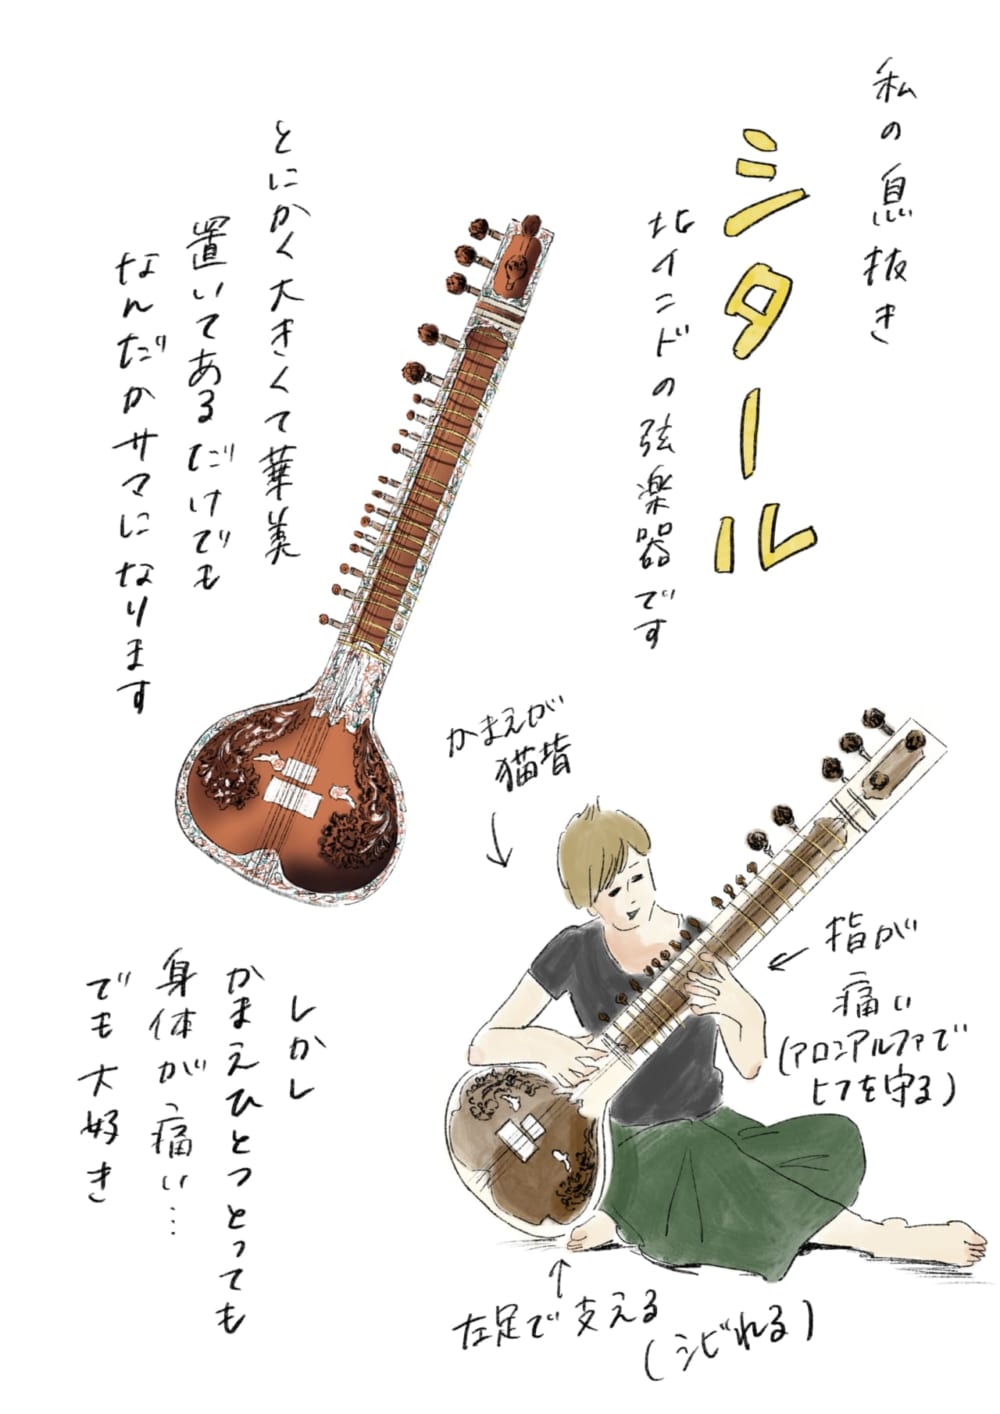 私の息抜き
シタール
北インドの弦楽器です
とにかく大きくて華美
置いてあるだけでも
なんだかサマになります
かまえが
猫背
指が
痛い
(アロンアルファで
ヒフを守る)
左足で支える
(シビれる)
しかし
かまえひとつとっても
身体が痛い…
でも大好き